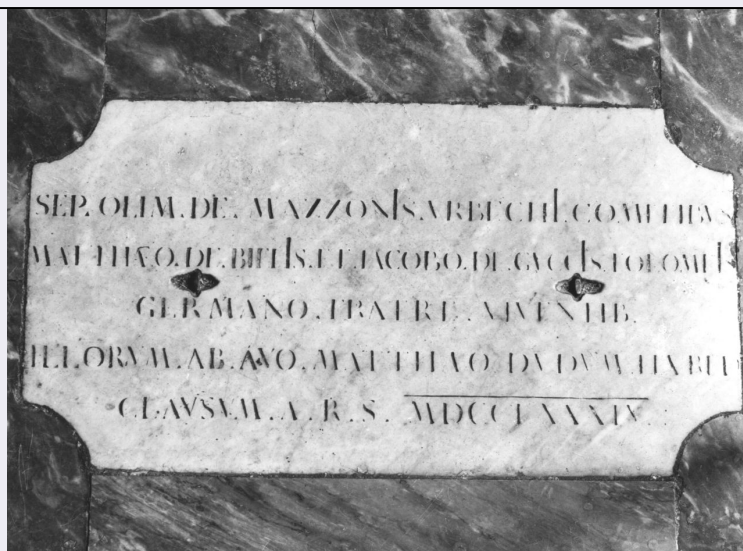 SEP. OLIM. DE. MAZZONIS. VRBECHII. COMITIBVS
MATTHÆO. DE. ET. JACOBO. DE. GVCCIS. TOLOMEIS
GERMANO. FRATRE. VIVENTIB.
ILLORVM. AB. AVO. MATTHÆO. DVDVM. HÆRED
CLAVSVM. A. R. S. MDCCLXXXIX.